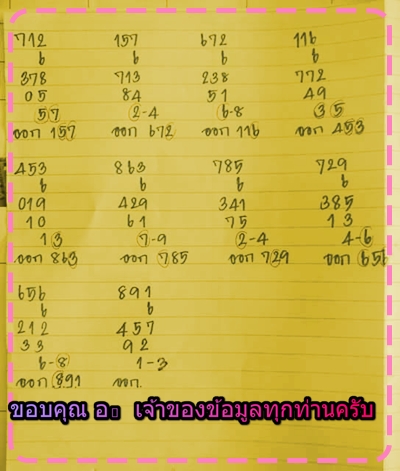 712 157 672 116
6 6 6 6
378 713 238 772
05 84 51 49
57 2-4 6-8 35
ออก 157 ออก 672 ออก 116 ออก 453
453 863 785 729
6 6 6 6
019 429 341 385
10 61 75 13
13 7-9 2-4 4-6
ออก 863 ออก 785 ออก 729 ออก 656
656 891
6 6
212 457
33 92
6-8 1-3
ออก 891 ออก.
ขอบคุณ อ เจ้าของข้อมูลทุกท่านครับ